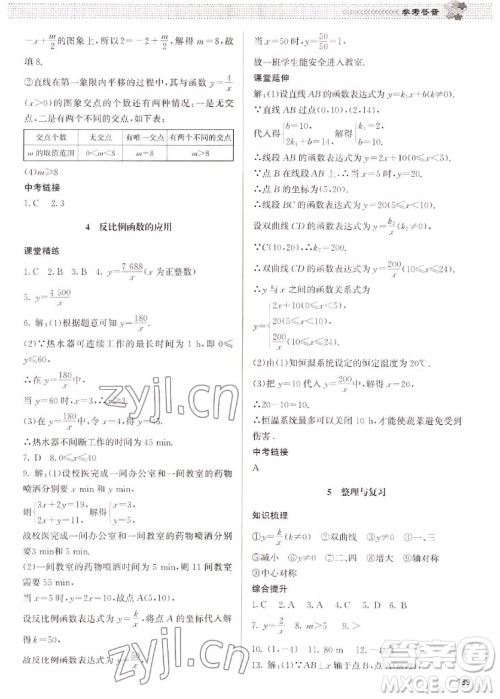 参考答案
-x+m/2的图形上,得 2=-2+m/2,解得 m=8,故
填8.
②直线在第一象限内平移的过程中,其与函数 y=4/x
(x>0)的图象交点的个数还有两种情况:一是无交
点,二是有两个不同的交点,如下表:
交点个数 无交点 有唯一交点 有两个不同的交点
m的取值范围 0<m<8 m=8 m>8
(4)m≥8
中考链接
1.C 2.3
4 反比例函数的应用
课堂精练
1.C 2.B 3.B 4.y=7 688/x(x为正整数)
5.y=4 500/x
6.解:(1)根据题意可知 y=180/x.
(2)∵热水器可连续工作的时间为 0≤
y≤60,
∴在 y=180/x中,
当 y=60时,x=3,∴x≥3.
(3)在 y=180/x中,
∴热水器不间断工作的时间为 45 min.
7.C 8.0≤x≤40
9.解:(1)设校医完成一间办公室和一间教室的药物
喷洒分别要 x min和 y min,
则{3x+2y=19, 2x+y=11,解得{x=3, y=5.
故校医完成一间办公室和一间教室的药物喷洒分别
要3 min和5 min.
(2)一间教室的药物喷洒时间为 5 min,则 11间教室
需要55 min.
当 x=5时,y=2x=10,故点 A(5,10).
设反比例函数表达式为 y=k/x,将点 A 的坐标代入得
解得 k=50,故反比例函数表达式为 y=50/x,
当 x=50时,y=50/50=1,
故一班学生能安全进入教室.
课堂延伸
解:(1)设直线 AB 的函数表达式为 y=k₁x+b(k≠0).
∵直线 AB 过点(0,10),(2,14),
代入得{b=10, 2k₁+b=14,解得{k₁=2, b=10.
∴线段 AB 的函数表达式为 y=2x+10(0≤x<5).
∵点 B 在线段 AB 上,当 x=5时,y=20,
∴点 B 坐标为(5,20).
∴线段 BC 的函数表达式为 y=20(5≤x<10).
设双曲线 CD 的函数表达式为 y=k₂/x(k₂≠0).
∵C(10,20),∴k₂=200.
∴双曲线 CD 的函数表达式为 y=200/x(10≤x≤24).
∴y与x之间的函数关系式为
y={2x+10(0≤x<5), 20(5≤x<10), 200/x(10≤x≤24).
(2)由(1)知恒温系统设定的恒定温度为20℃.
(3)把 y=10代入 y=200/x中,解得 x=20.
∴20-10=10.
∴恒温系统最多可以关闭10 h,才能使蔬菜避免受到
伤害.
中考链接
A
5 整理与复习
知识梳理
①y=k/x(k≠0) ②双曲线 ③双曲线 ④一、三
⑤减小 ⑥双曲线 ⑦二、四 ⑧增大 ⑨轴对称
⑩中心对称
综合提升
1.B
13.解:(1)∵AB⊥x轴于点 B,且AB
zyjl.cn
zyjl.cn